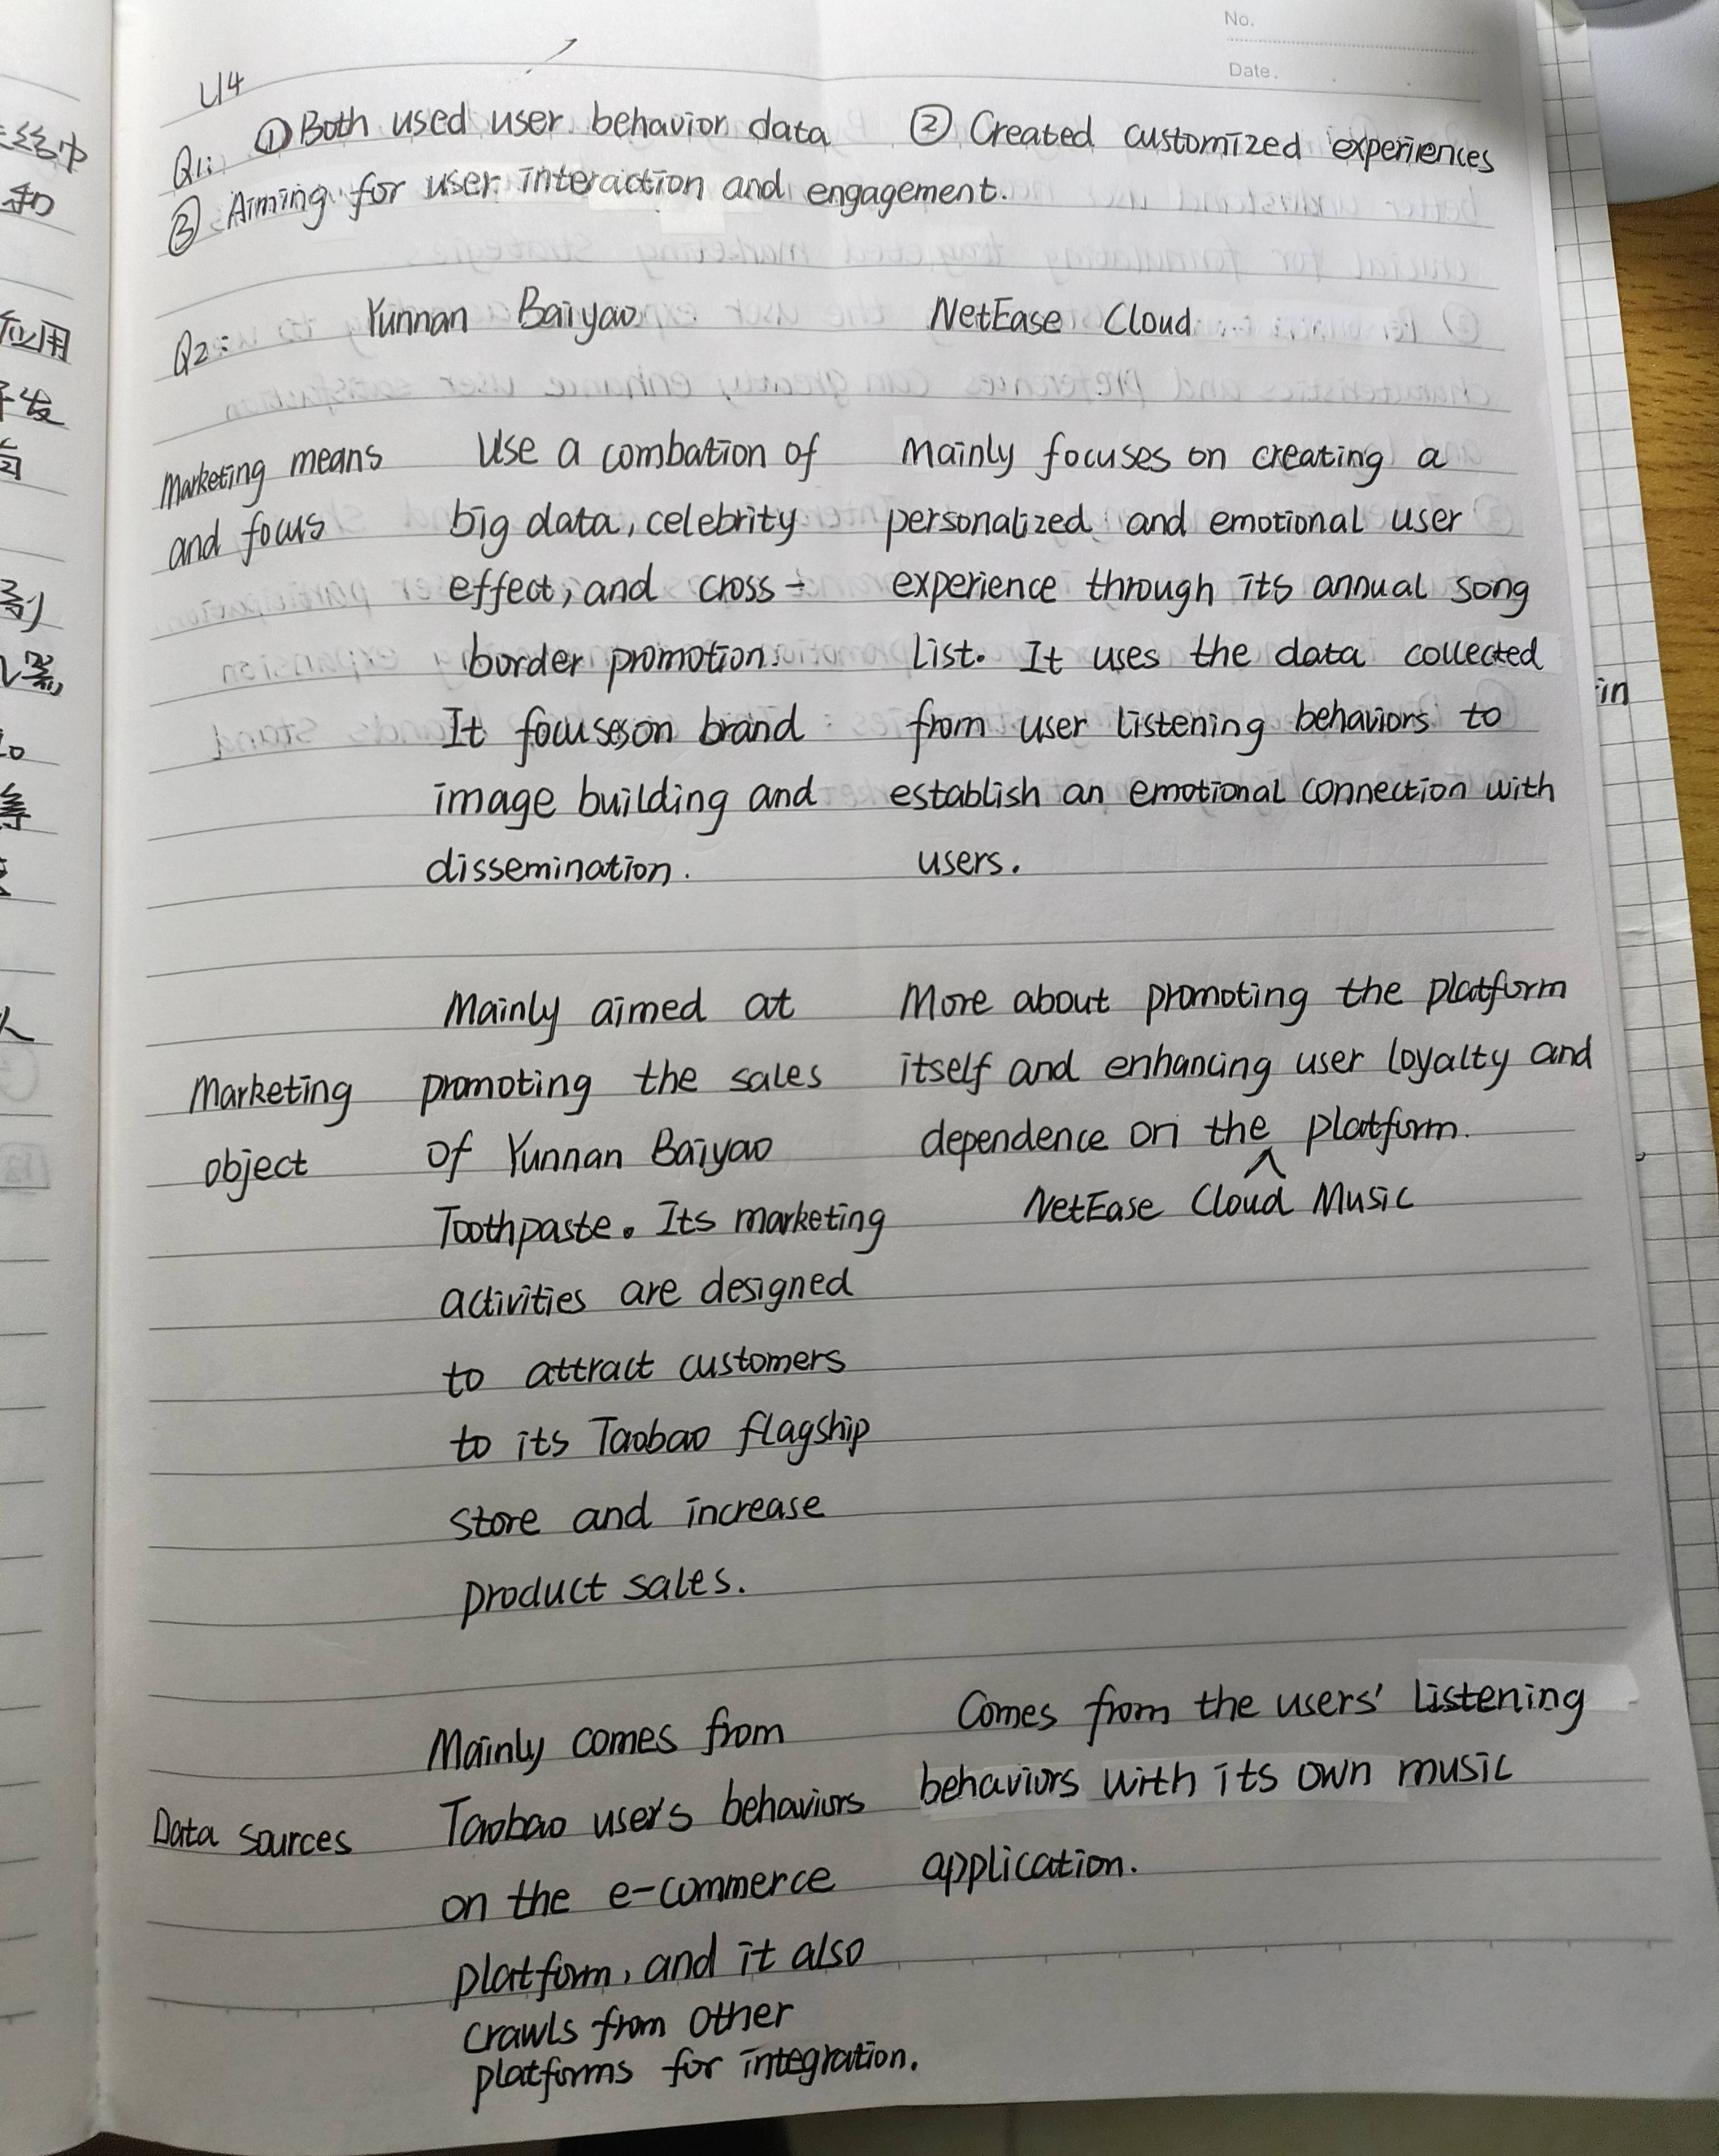 No.
Date.
U4
Q1: ① Both used user behavior data ② Created customized experiences
③ Aiming for user interaction and engagement.
Q2: Yunnan Baiyao NetEase Cloud
Marketing means
and focus
Use a combation of
big data, celebrity
effect, and cross-
border promotion.
It focuses on brand
image building and
dissemination.
Mainly focuses on creating a
personalized and emotional user
experience through its annual song
list. It uses the data collected
from user listening behaviors to
establish an emotional connection with
users.
Marketing
object
Mainly aimed at
promoting the sales
of Yunnan Baiyao
Toothpaste. Its marketing
activities are designed
to attract customers
to its Taobao flagship
store and increase
product sales.
More about promoting the platform
itself and enhancing user loyalty and
dependence on the platform.
NetEase Cloud Music
Data sources
Mainly comes from
Taobao user's behaviors
on the e-commerce
platform, and it also
crawls from other
platforms for integration.
Comes from the users' listening
behaviors with its own music
application.
和
应用
发
等
人
in